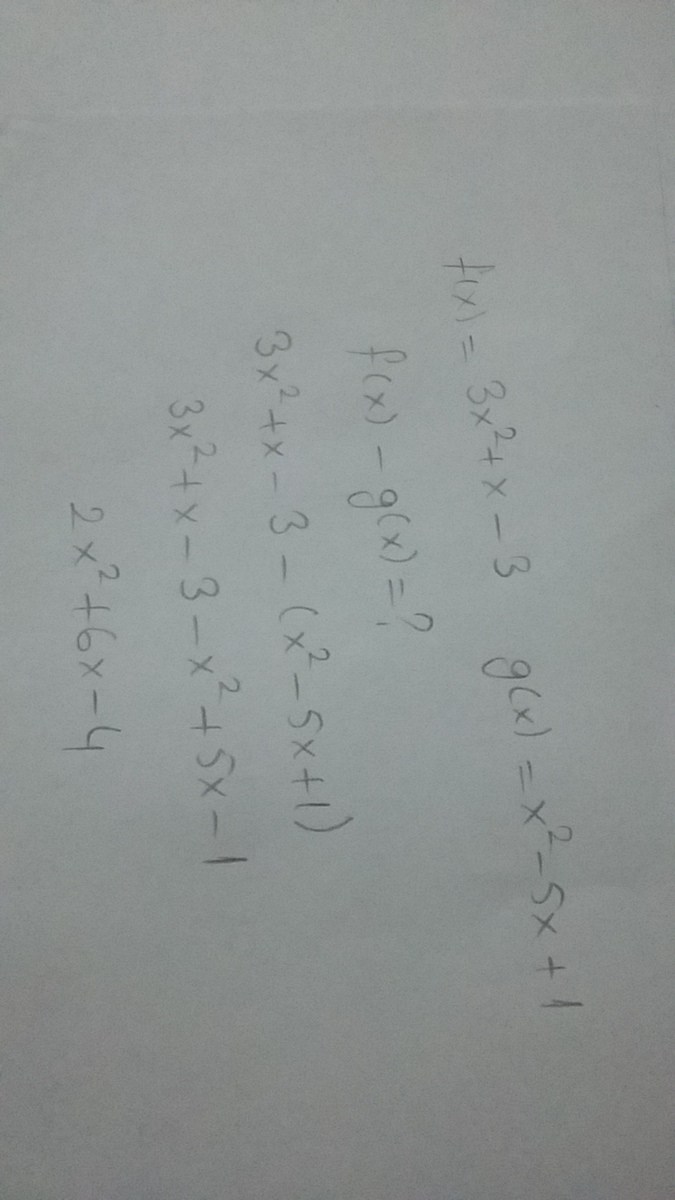 f(x) = 3x²+x-3 g(x) = x²-5x+1
f(x) - g(x) = ?
3x²+x-3-(x²-5x+1)
3x²+x-3-x²+5x-1
2x²+6x-4